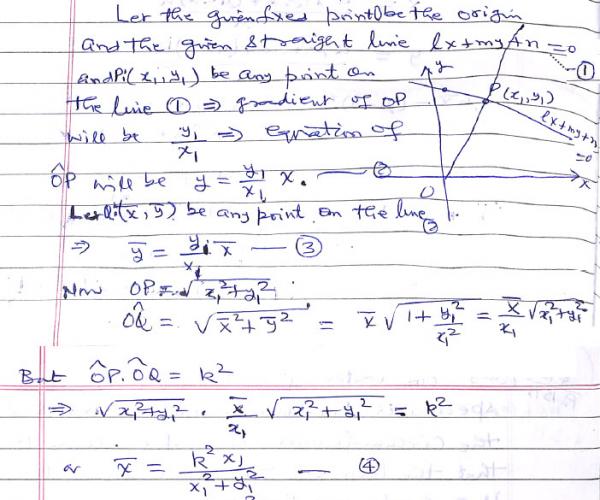 Let the given fixed point O be the origin
and the given straight line lx+my+n=0
①
and P(x₁,y₁) be any point on
the line ① ⇒ gradient of OP
will be y₁/x₁ ⇒ equation of
ÔP will be y = y₁/x₁ x. — ②
Let Q(x̄,ȳ) be any point on the line ②
⇒ ȳ = y₁/x₁ x̄ — ③
Now OP = √(x₁²+y₁²)
ÔQ = √(x̄²+ȳ²) = x̄ √(1+y₁²/x₁²) = x̄/x₁ √(x₁²+y₁²)
But ÔP.ÔQ = k²
⇒ √(x₁²+y₁²) . x̄/x₁ √(x₁²+y₁²) = k²
or x̄ = k²x₁/(x₁²+y₁²) — ④
y
P(x₁,y₁)
lx+my+n
=0
O
x